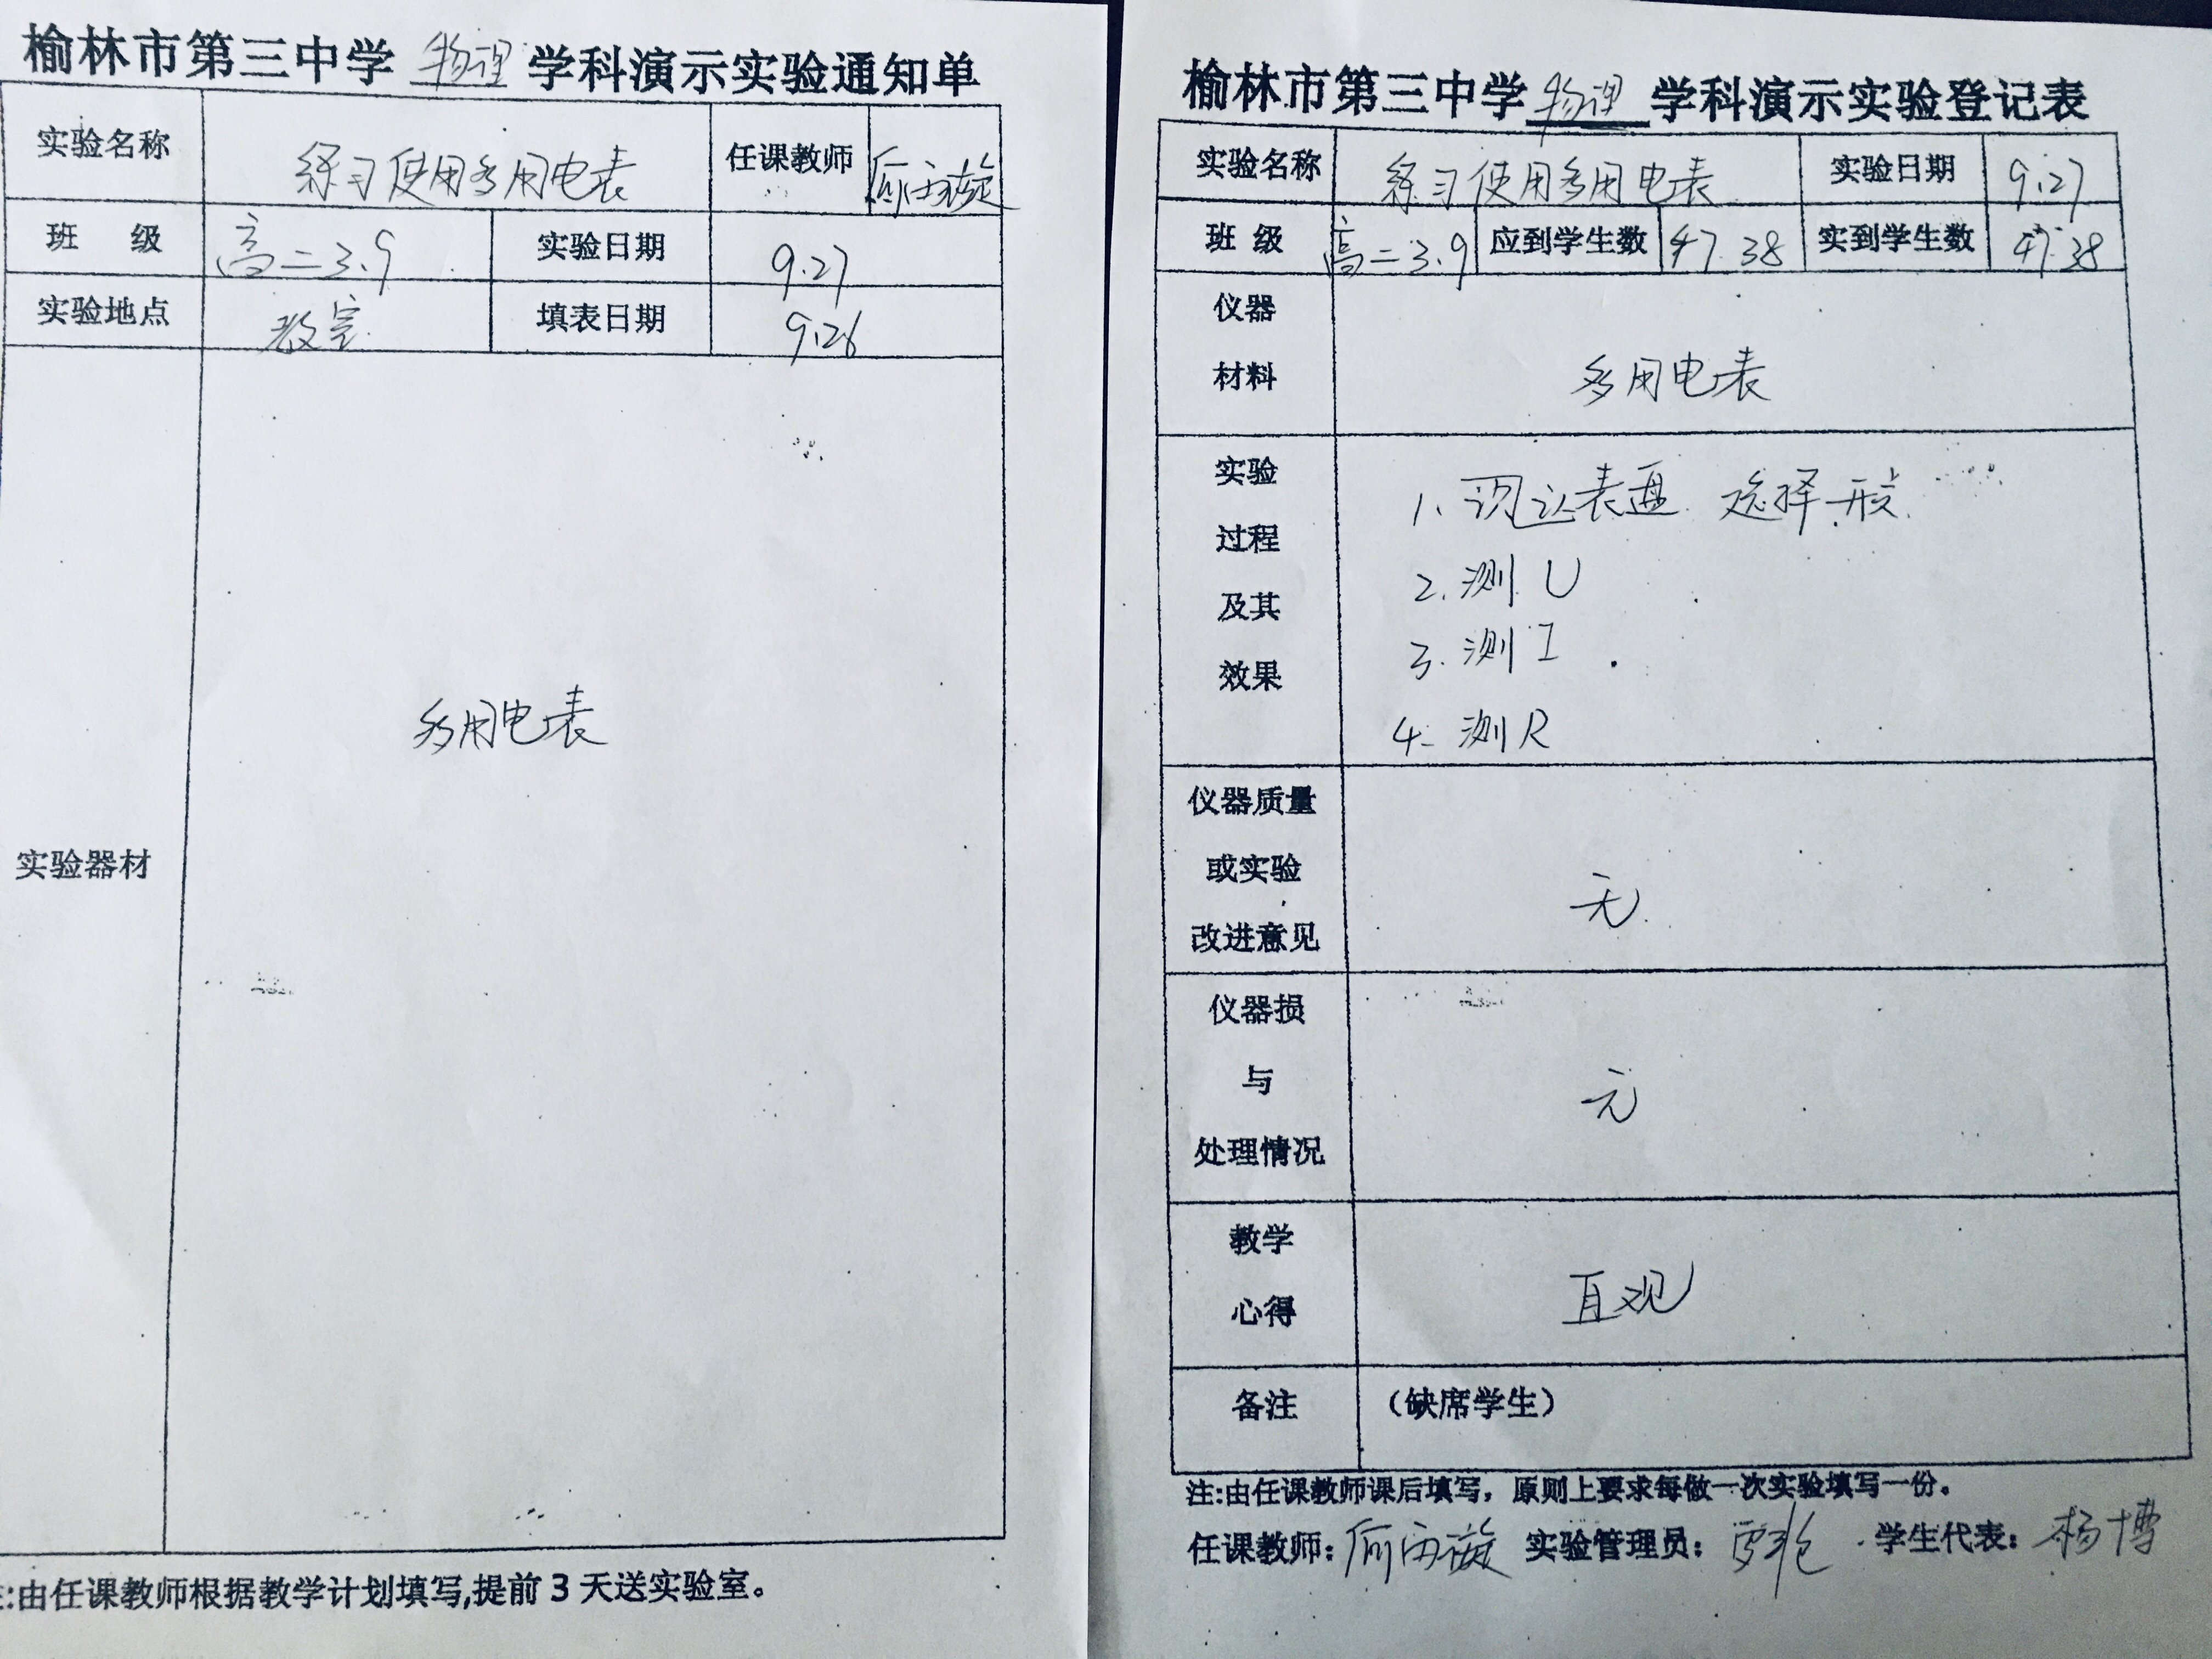 榆林市第三中学 物理 学科演示实验通知单
实验名称 练习使用多用电表 任课教师
班 级 高二3.9 实验日期 9.27
实验地点 教室 填表日期 9.26
实验器材 多用电表
:由任课教师根据教学计划填写,提前3天送实验室。
榆林市第三中学 物理 学科演示实验登记表
实验名称 练习使用多用电表 实验日期 9.27
班 级 高二3.9 应到学生数 47.38 实到学生数 47.38
仪器
材料
多用电表
实验
过程
及其
效果
1、认识表盘 选择开关.
2.测 U
3.测 I
4.测 R
仪器质量
或实验
改进意见
无
仪器损
与
处理情况
无
教学
心得
直观
备注 (缺席学生)
注:由任课教师课后填写，原则上要求每做一次实验填写一份。
任课教师: 实验管理员: 学生代表: 杨博